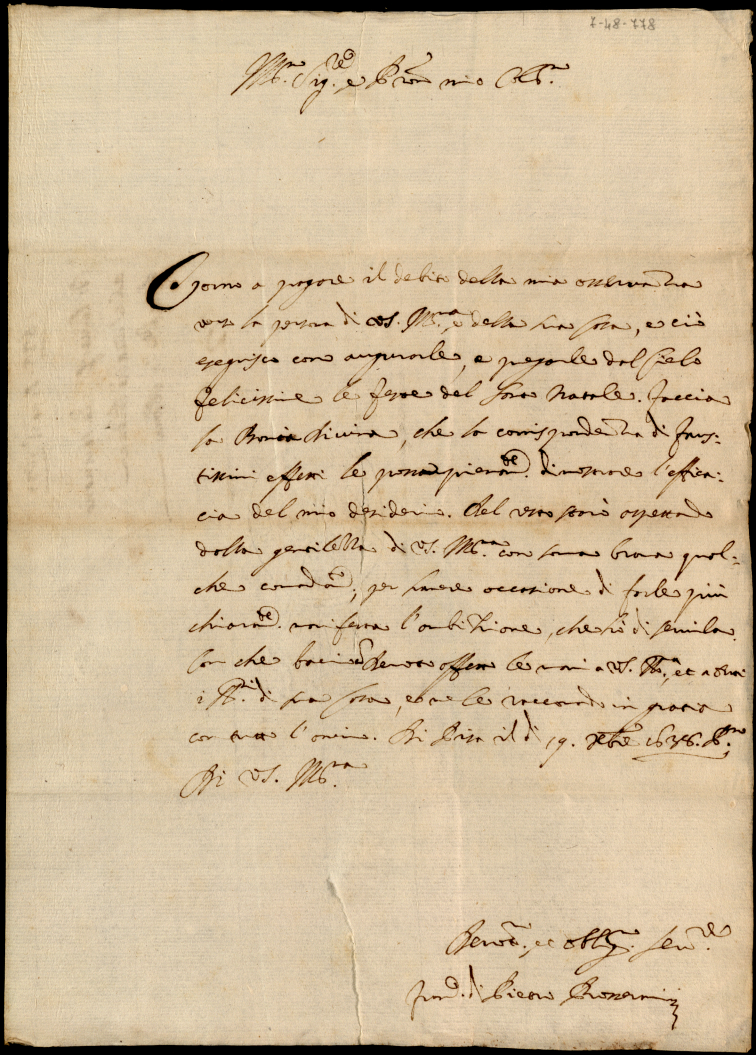 7-48-778
Ill.re Sig.re e Pron mio Col.mo
Torno a pagare il debito della mia osservanza
verso la persona di VS. Ill.ma, e della sua Casa, e ciò
eseguisco con augurarle, e pregarle dal Cielo
felicissime le feste del Santo Natale. Faccia
la Bontà Divina, che la corrispondenza di faus-
tissimi effetti le possa pienam.te dimostrare l'effica-
cia del mio desiderio. Del resto starò aspettando
dalla gentilezza di VS. Ill.ma con somma brama qual-
che comando, per havere occasione di farle più
chiaram.te manifesta l'ambitione, che hò di servirla.
Con che devoto affetto le mani a VS. Ill.ma, et a
i di sua Casa, e me le raccomando in gratia
con tutto l'animo. Di Pisa il dì 19. Xbre
Di VS. Ill.ma
Devot.mo et Obblig.mo Ser.re
di Pietro